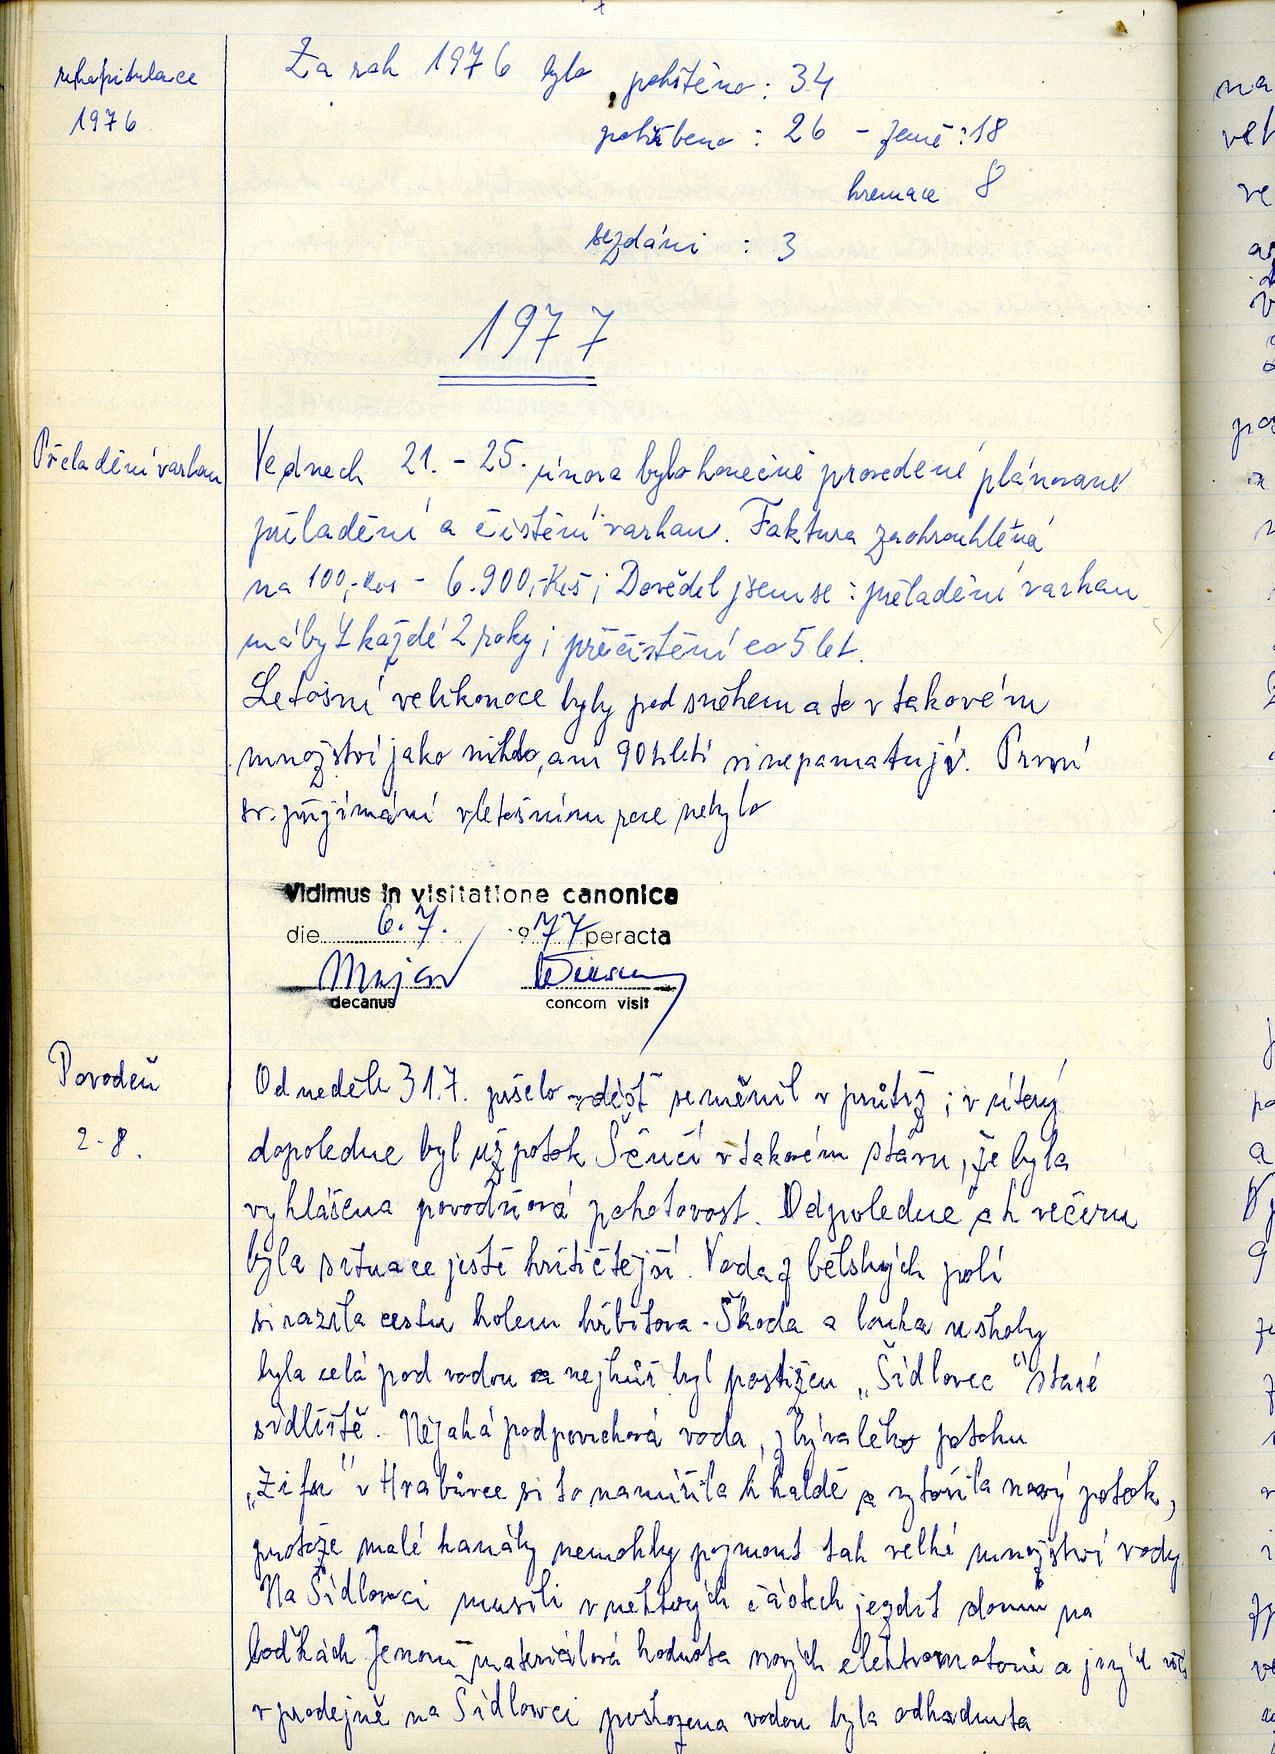 rekapitulace
1976
Za rok 1976 bylo pokřtěno: 34
pohřbeno: 26 - země: 18
kremace 8
sezdáni : 3
1977
Přeladění varhan
Ve dnech 21. - 25. února bylo konečně provedené plánované
přeladění a čistění varhan. Faktura zaokrouhlená
na 100,- Kčs - 6.900,- Kčs; Dověděl jsem se: přeladění varhan
má být každé 2 roky; přečistění co 5 let.
Letošní velikonoce byly pod sněhem a to v takovém
množství jako nikdo, ani 90tiletí si nepamatují. První
sv. přijímání v letošním roce nebylo
Vidimus in visitatione canonica
die 6.7. 1977 peracta
decanus concom visit
Povodeň
2.8.
Od neděle 31.7. pršelo - déšť se měnil v průtrž; v úterý
dopoledne byl už potok Ščučí v takovém stavu, že byla
vyhlášena povodňová pohotovost. Odpoledne a k večeru
byla situace ještě kritičtější. Voda z bělských polí
si razila cestu kolem hřbitova - Škoda a louka u školy
byla celá pod vodou a nejhůř byl postižen „Šídlovec" staré
sídliště. Nějaká podpovrchová voda, z bývalého potoka
„Zifu" v Hrabůvce si to namířila k haldě a vytvořila nový potok,
protože malé kanály nemohly pojmout tak velké množství vody.
Na Šídlovci museli v některých částech jezdit domů na
loďkách. Jenom materiálová hodnota nových elektromotorů a jiných věcí
v prodejně na Šídlovci poškozena vodou byla odhadnuta